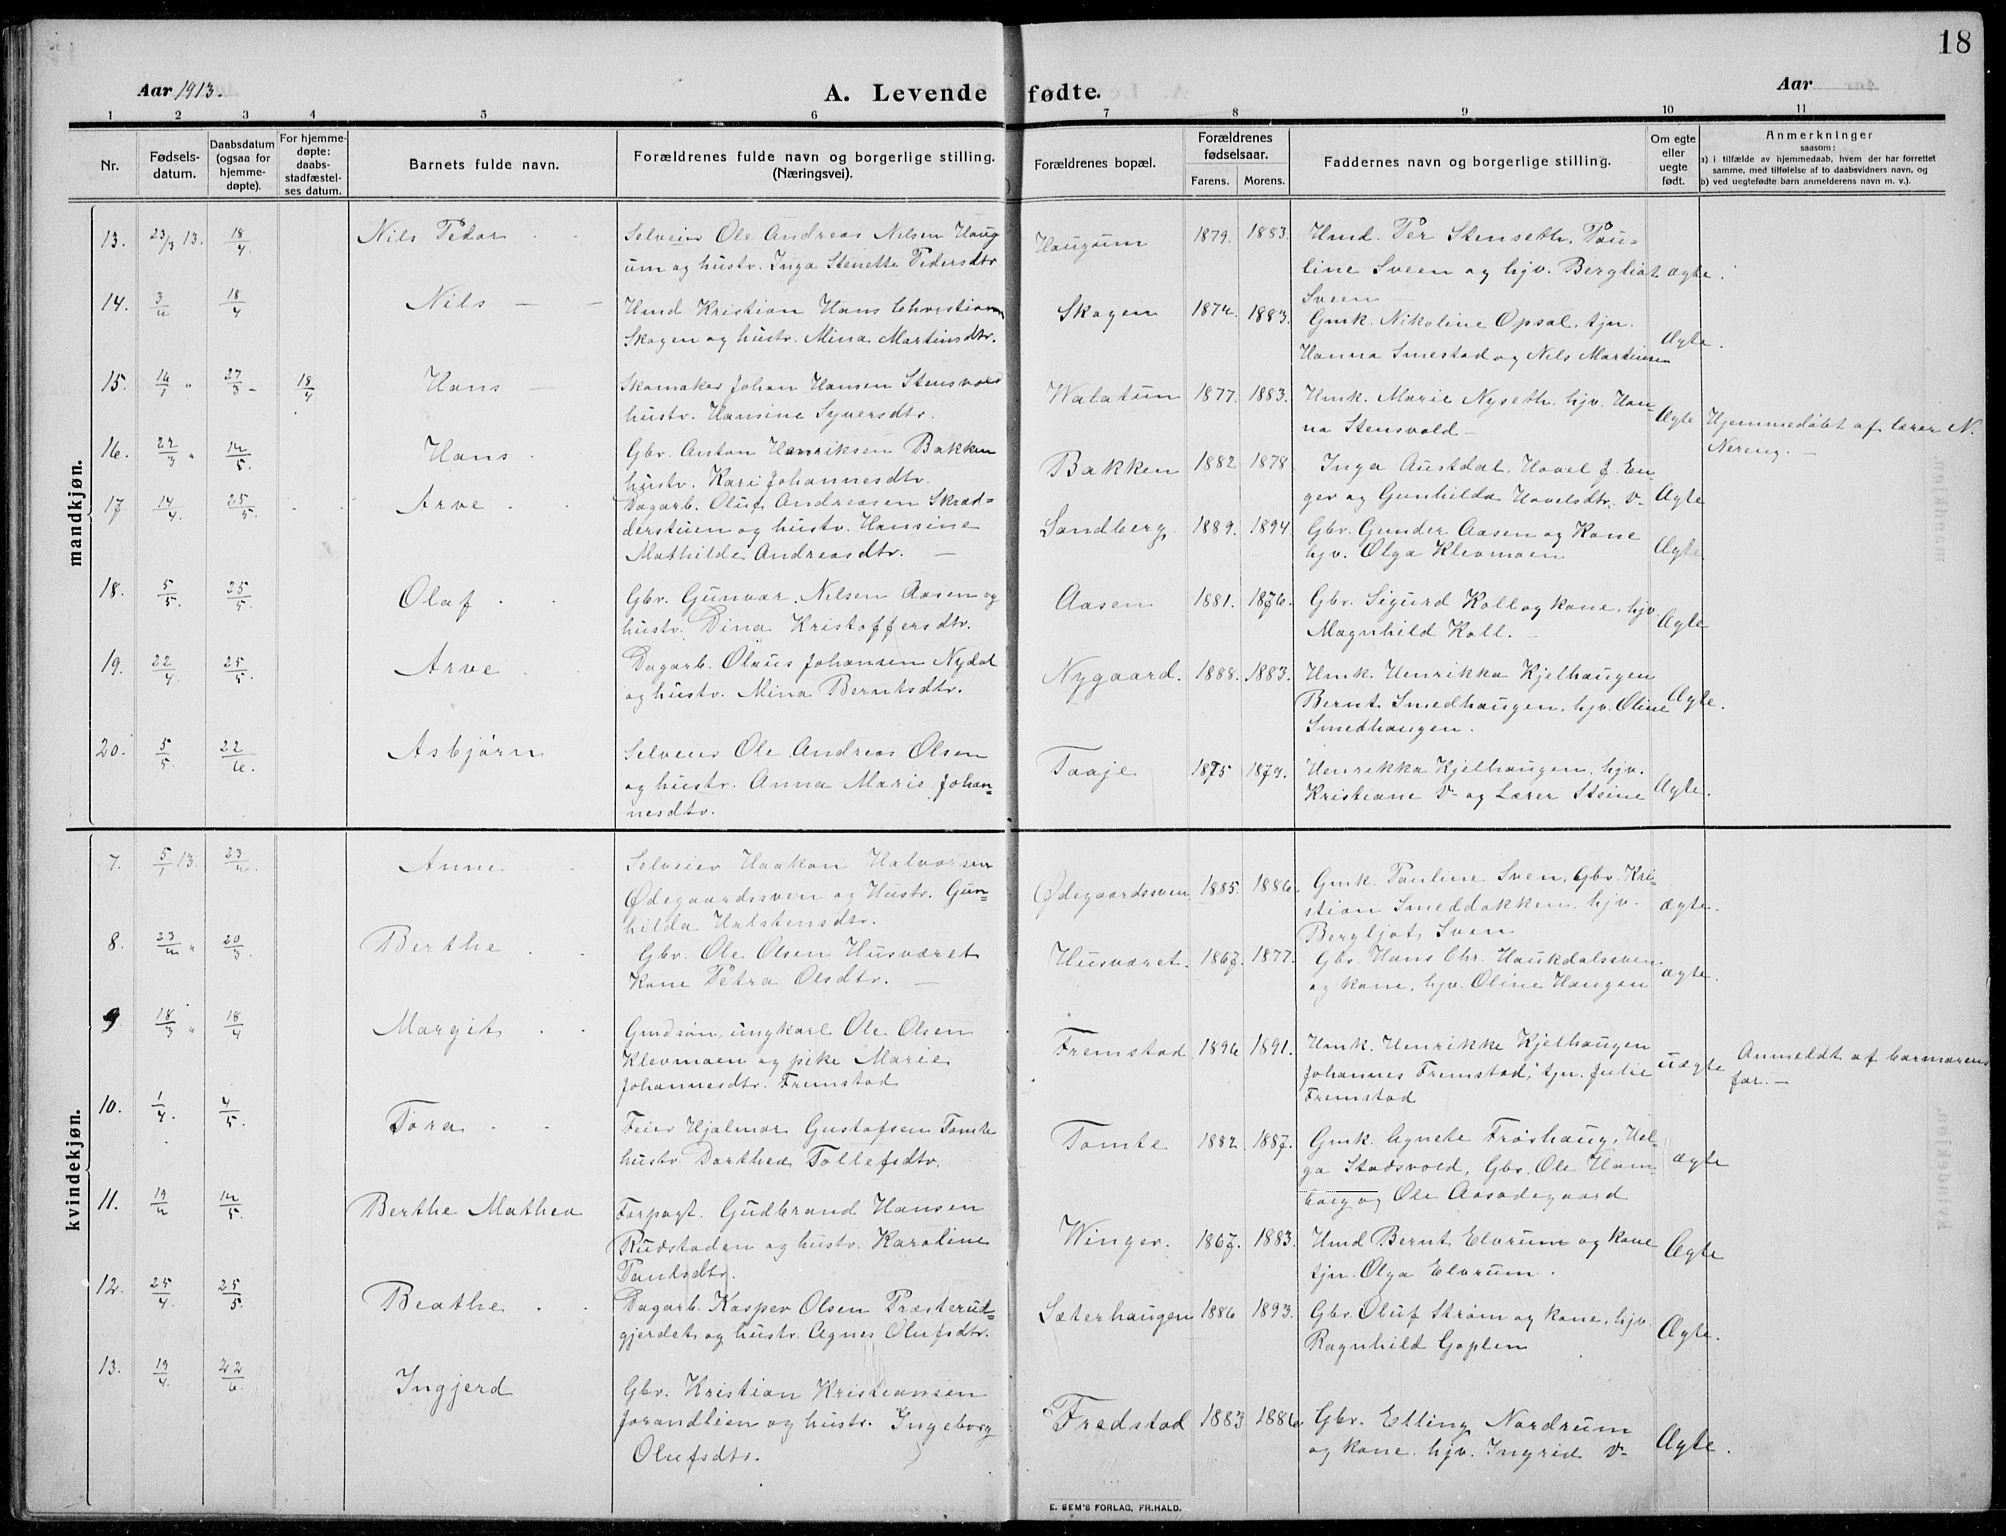 18
Aar 1913.
A. Levende fødte.
Aar
1 2 3 4 5 6 7 8 9 10 11
Nr.
Fødsels-
datum.
Daabsdatum
(ogsaa for
hjemme-
døpte).
For hjemme-
døpte:
daabs-
stadfæstel-
ses datum.
Barnets fulde navn.
Forældrenes fulde navn og borgerlige stilling.
(Næringsvei).
Forældrenes bopæl.
Forældrenes
fødselsaar.
Farens. Morens.
Faddernes navn og borgerlige stilling.
Om egte
eller
uegte
født.
Anmerkninger
saasom:
a) i tilfælde av hjemmedaab, hvem der har forrettet
samme, med tilføielse af to daabsvidners navn, og
b) ved uegtefødte barn anmelderens navn m. v.).
mandkjøn.
13. 23/3 13. 18/4 Nils Peder Selveier Ole Andreas Nilsen Haug
um og hustr. Inga Stenette Pedersdtr
Haugum 1879. 1883. Hmd. Per Stenseth, Pau-
line Sveen og hjv. Bergliot
Sveen
ægte.
14. 3/4 18/4 Nils Hmd Kristian Hans Christian
Skogen og hustr. Mina Martinsdtr.
Skogen 1874. 1883. Gmk. Nikoline Opsal, tjn.
Hanna Smestad og Nils Martinsen
Ægte.
15. 14/1 " 27/3 18/4 Hans Skomaker Johan Hansen Stensvold
hustr. Hansine Syversdtr.
Walatun 1877. 1883. Hmk. Marie Nyseth, hjv. Han-
na Stensvold
Ægte Hjemmedøbt af lærer N.
Nereng.
16. 22/3 " 12/5. Hans. Gbr. Anton Henriksen Bakken
hustr. Kari Johannesdtr.
Bakken 1882 1878 Inga Austdal, Hovel J. En-
ger og Gunhilda Hovelsdtr. do
Ægte
17 14/4. 25/5. Arve Dagarb. Oluf Andreasen Skræd-
derstuen og hustr. Hansine
Mathilde Andreasdtr.
Sandberg. 1889. 1894 Gbr. Gunder Aasen og Kone
hjv. Olga Klevmoen
Ægte
18. 5/5. 25/5. Olaf Gbr. Gunvar. Nilsen Aasen og
hustr. Dina Kristoffersdtr.
Aasen 1881. 1876. Gbr. Sigurd Koll og kone, hjv
Magnhild Koll.
Ægte
19. 22/4. 25/5. Arve Dagarb. Olaus Johansen Nydal
og hustr. Mina Berntsdtr.
Nygaard. 1888. 1883. Hmk. Henrikka Kjelhaugen
Bernt Smedhaugen, hjv. Oline
Smedhaugen.
Ægte.
20. 5/5. 22/6. Asbjørn Selveier Ole Andreas Olsen
og hustr. Anna Marie Johan-
nesdtr.
Taaje 1875 1879. Henrikka Kjelhaugen, hjv.
Kristiane do og Lærer Steine
Ægte.
kvindekjøn.
7. 5/1 13. 23/4. Anne Selveier Haakon Halvorsen
Ødegaardssven og Hustr. Gun-
hilda Halstensdtr.
Ødegaardssven 1885. 1886. Gmk. Pauline Sven, Gbr. Kri-
stian Smeddokken, hjv.
Bergljot Sven
ægte.
8. " 20/3. Berthe Gbr. Ole Olsen Husværet
Kone Petra Olsdtr.
Husværet. 1867. 1877. Gbr. Hans Chr. Haukdalssven
og kone, hjv. Oline Haugen
ægte.
9 18/3 " 18/4 Margit Gmdsøn, ungkarl Ole Olsen
Klevmoen og pike Marie
Johannesdtr. Fremstad
Fremstad 1896 1891. Hmk. Henrikke Kjelhaugen
Johannes Fremstad, tjn. Julie
Fremstad
uægte Anmeldt af barmorens
far.
10. 1/4. 4/5. Tora Feier Hjalmar Gustafsen Tomte
hustr Dorthea Tollefsdtr.
Tomte 1882. 1887. Gmk. Agnete Frøshaug, Hel-
ga Stadsvold, Gbr. Ole Ham-
borg og Ole Aasødegaard
ægte
11. 19/4 12/5. Berthe Mathea Forpagt. Gudbrand Hansen
Rudstaden og hustr. Karoline
Paulsdtr.
Winger. 1867. 1883. Hmd Bernt Elvrum og kone
tjn. Olga Elvrum.
Ægte
12. 25/4. 25/5. Beathe Dagarb. Kasper Olsen Præsterud-
gjerdet og hustr. Agnes Olufsdtr.
Sæterhaugen 1886 1893. Gbr. Oluf Strøm og kone, hjv.
Ragnhild Goplen
Ægte.
13. 19/4. 22/6. Ingjerd Gbr. Kristian Kristiansen
Jorandlien og hustr. Ingeborg
Olufsdtr.
Fredstad 1883 1886. Gbr. Elling Nordrum
og kone. hjv. Ingrid do
Ægte.
E. SEM'S FORLAG, FR.HALD.